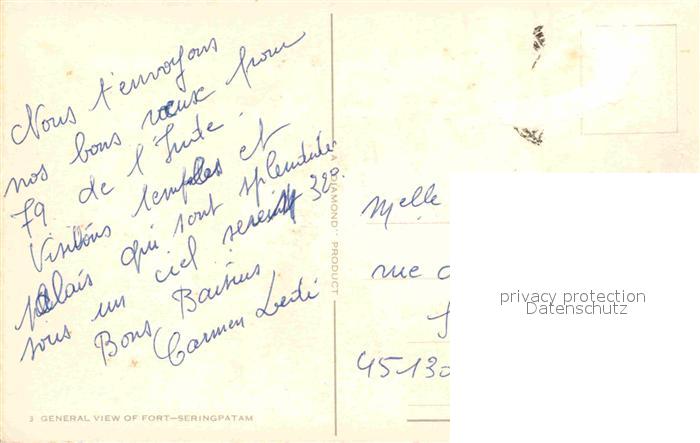 Nous t'envoyons
nos bons vœux pour
79 de l'Inde.
Visitons temples et
palais qui sont splendides
sous un ciel serein 32°.
Bons Baisers
Carmen
A "DIAMOND" PRODUCT
Melle
rue
45130
privacy protection
Datenschutz
3 GENERAL VIEW OF FORT—SERINGPATAM